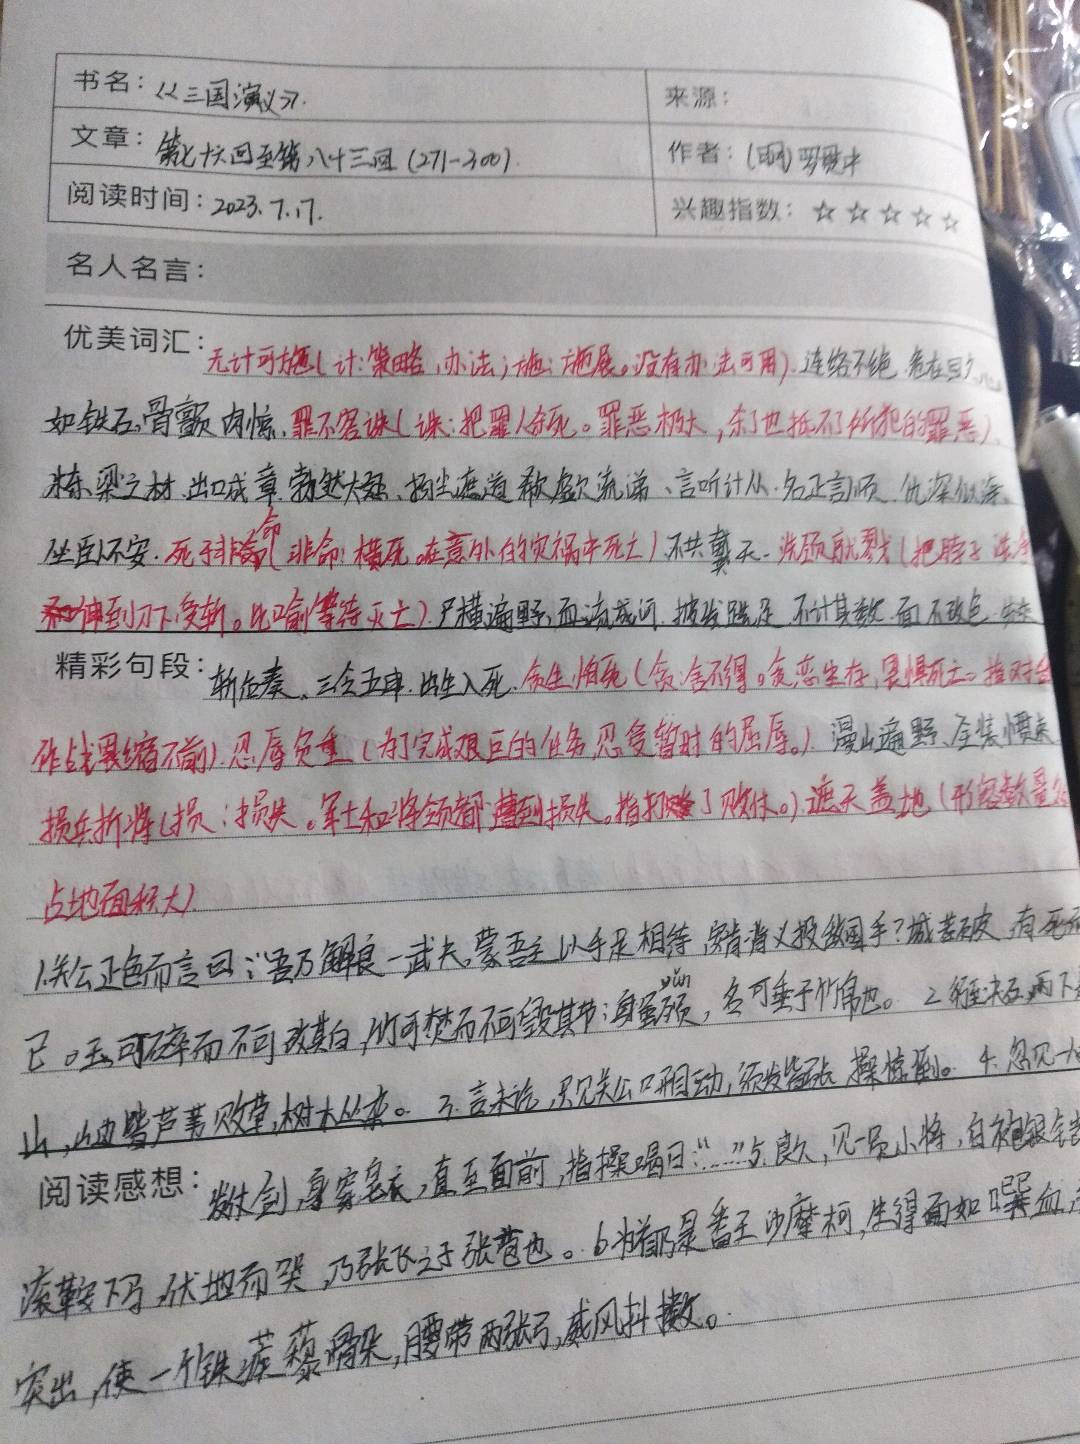 书名：《三国演义》.
来源：
文章：第七十六回至第八十三回(271-300).
作者：(明)罗贯中
阅读时间：2023.7.17.
兴趣指数：☆☆☆☆☆
名人名言：
优美词汇：无计可施(计：策略，办法；施：施展。没有办法可用).连络不绝.危在旦夕
如铁石.骨颤肉惊.罪不容诛(诛：把罪人杀死。罪恶极大，杀了也抵不了所犯的罪恶).
栋梁之材.出口成章.勃然大怒.扬尘遮道.欷歔流涕、言听计从.名正言顺.仇深似海.
坐卧不安.死于非命(非命：横死.在意外的灾祸中死亡)不共戴天.洗颈就戮(把脖子洗净
伸到刀下受斩。比喻等待灭亡).尸横遍野.血流成河.披发跣足.不计其数.面不改色
精彩句段：斩佐奏、三令五申.出生入死.贪生怕死(贪：舍不得。贪恋生存，畏惧死亡。指对
作战畏缩不前).忍辱负重(为了完成艰巨的任务，忍受暂时的屈辱。).漫山遍野、全装惯束
损兵折将(损：损失。军士和将领都遭到损失。指打了败仗。)遮天盖地(形容数量
占地面积大)
1.关公正色而言曰：“吾乃解良一武夫，蒙吾主以手足相待，安肯背义投敌国乎？城若破，有死而
已。玉可碎而不可改其白，竹可焚而不可毁其节；身虽殒，名可垂于竹帛也。2.径决石，两下是
yǔn
山，山边皆芦苇败草，树木丛杂。3.言未讫，只见关公口开目动，须发皆张，操惊倒。4.忽见一人
阅读感想：发仗剑，身穿皂衣，直至面前，指操喝曰：“……”5.良久，见一员小将，白袍银铠
滚鞍下马，伏地而哭，乃张飞之子张苞也。6.为首乃是番王沙摩柯，生得面如噀血，
突出，使一个铁蒺藜骨朵，腰带两张弓，威风抖擞。